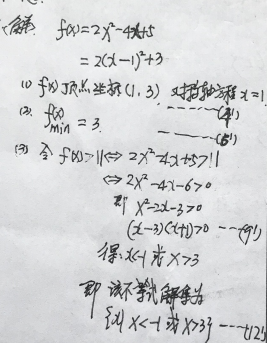 解: f(x)=2x²-4x+5
=2(x-1)²+3
(1) f(x)顶点坐标(1,3) 对称轴方程x=1
------(4')
(2) f(x)min=3. ------(6')
(3) 令 f(x)>11⇔2x²-4x+5>11
⇔2x²-4x-6>0
即 x²-2x-3>0
(x-3)(x+1)>0 ---(9')
得: x<-1 或 x>3
即 该不等式解集为
{x| x<-1 或 x>3} ----(12')